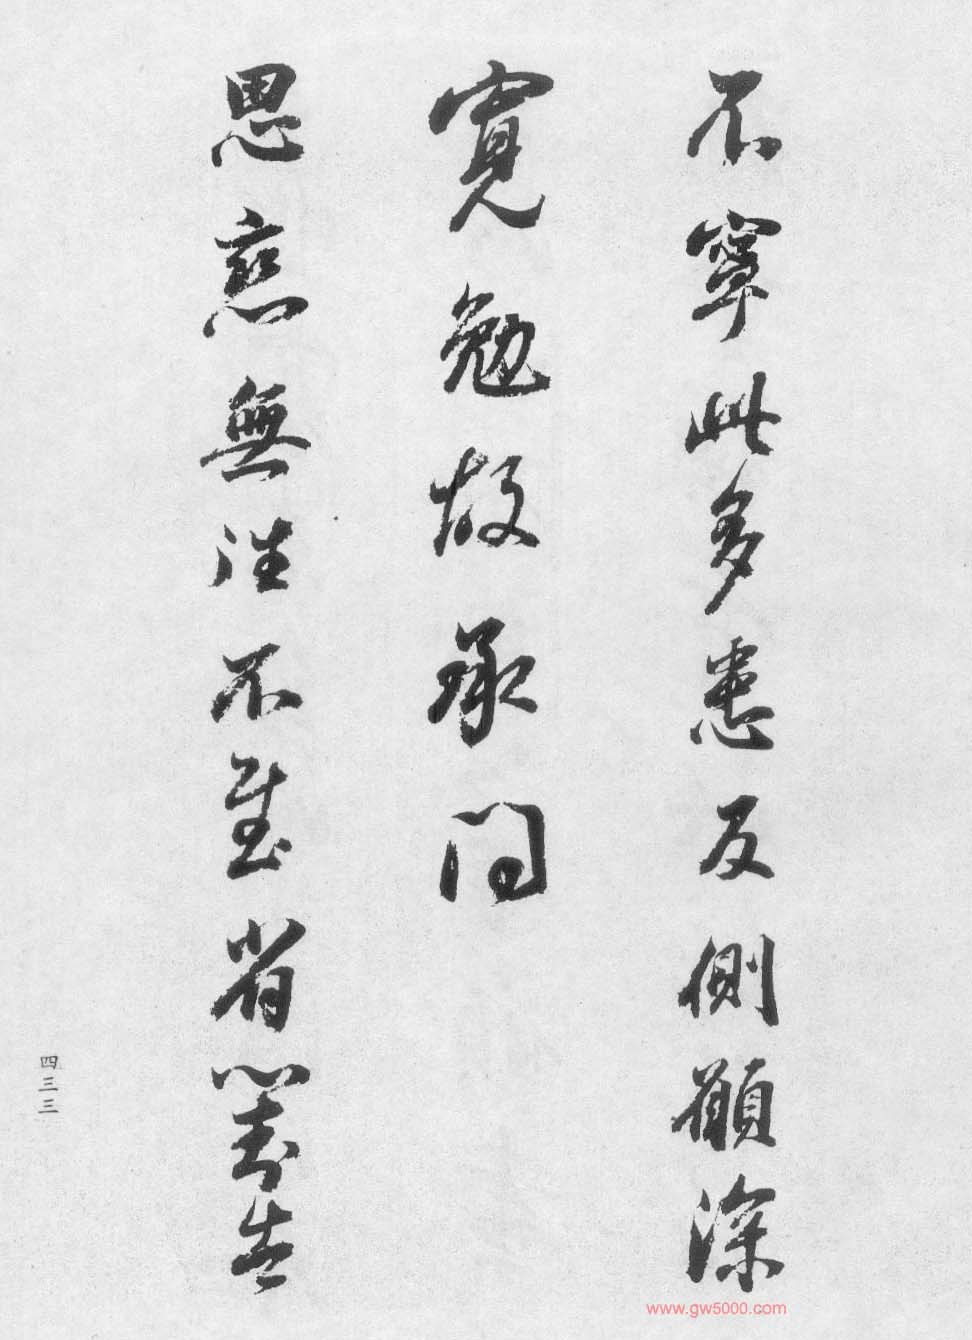 不寧此多患反側願深
寬勉故承問
思戀無往不至省對告
四三三
www.gw5000.com